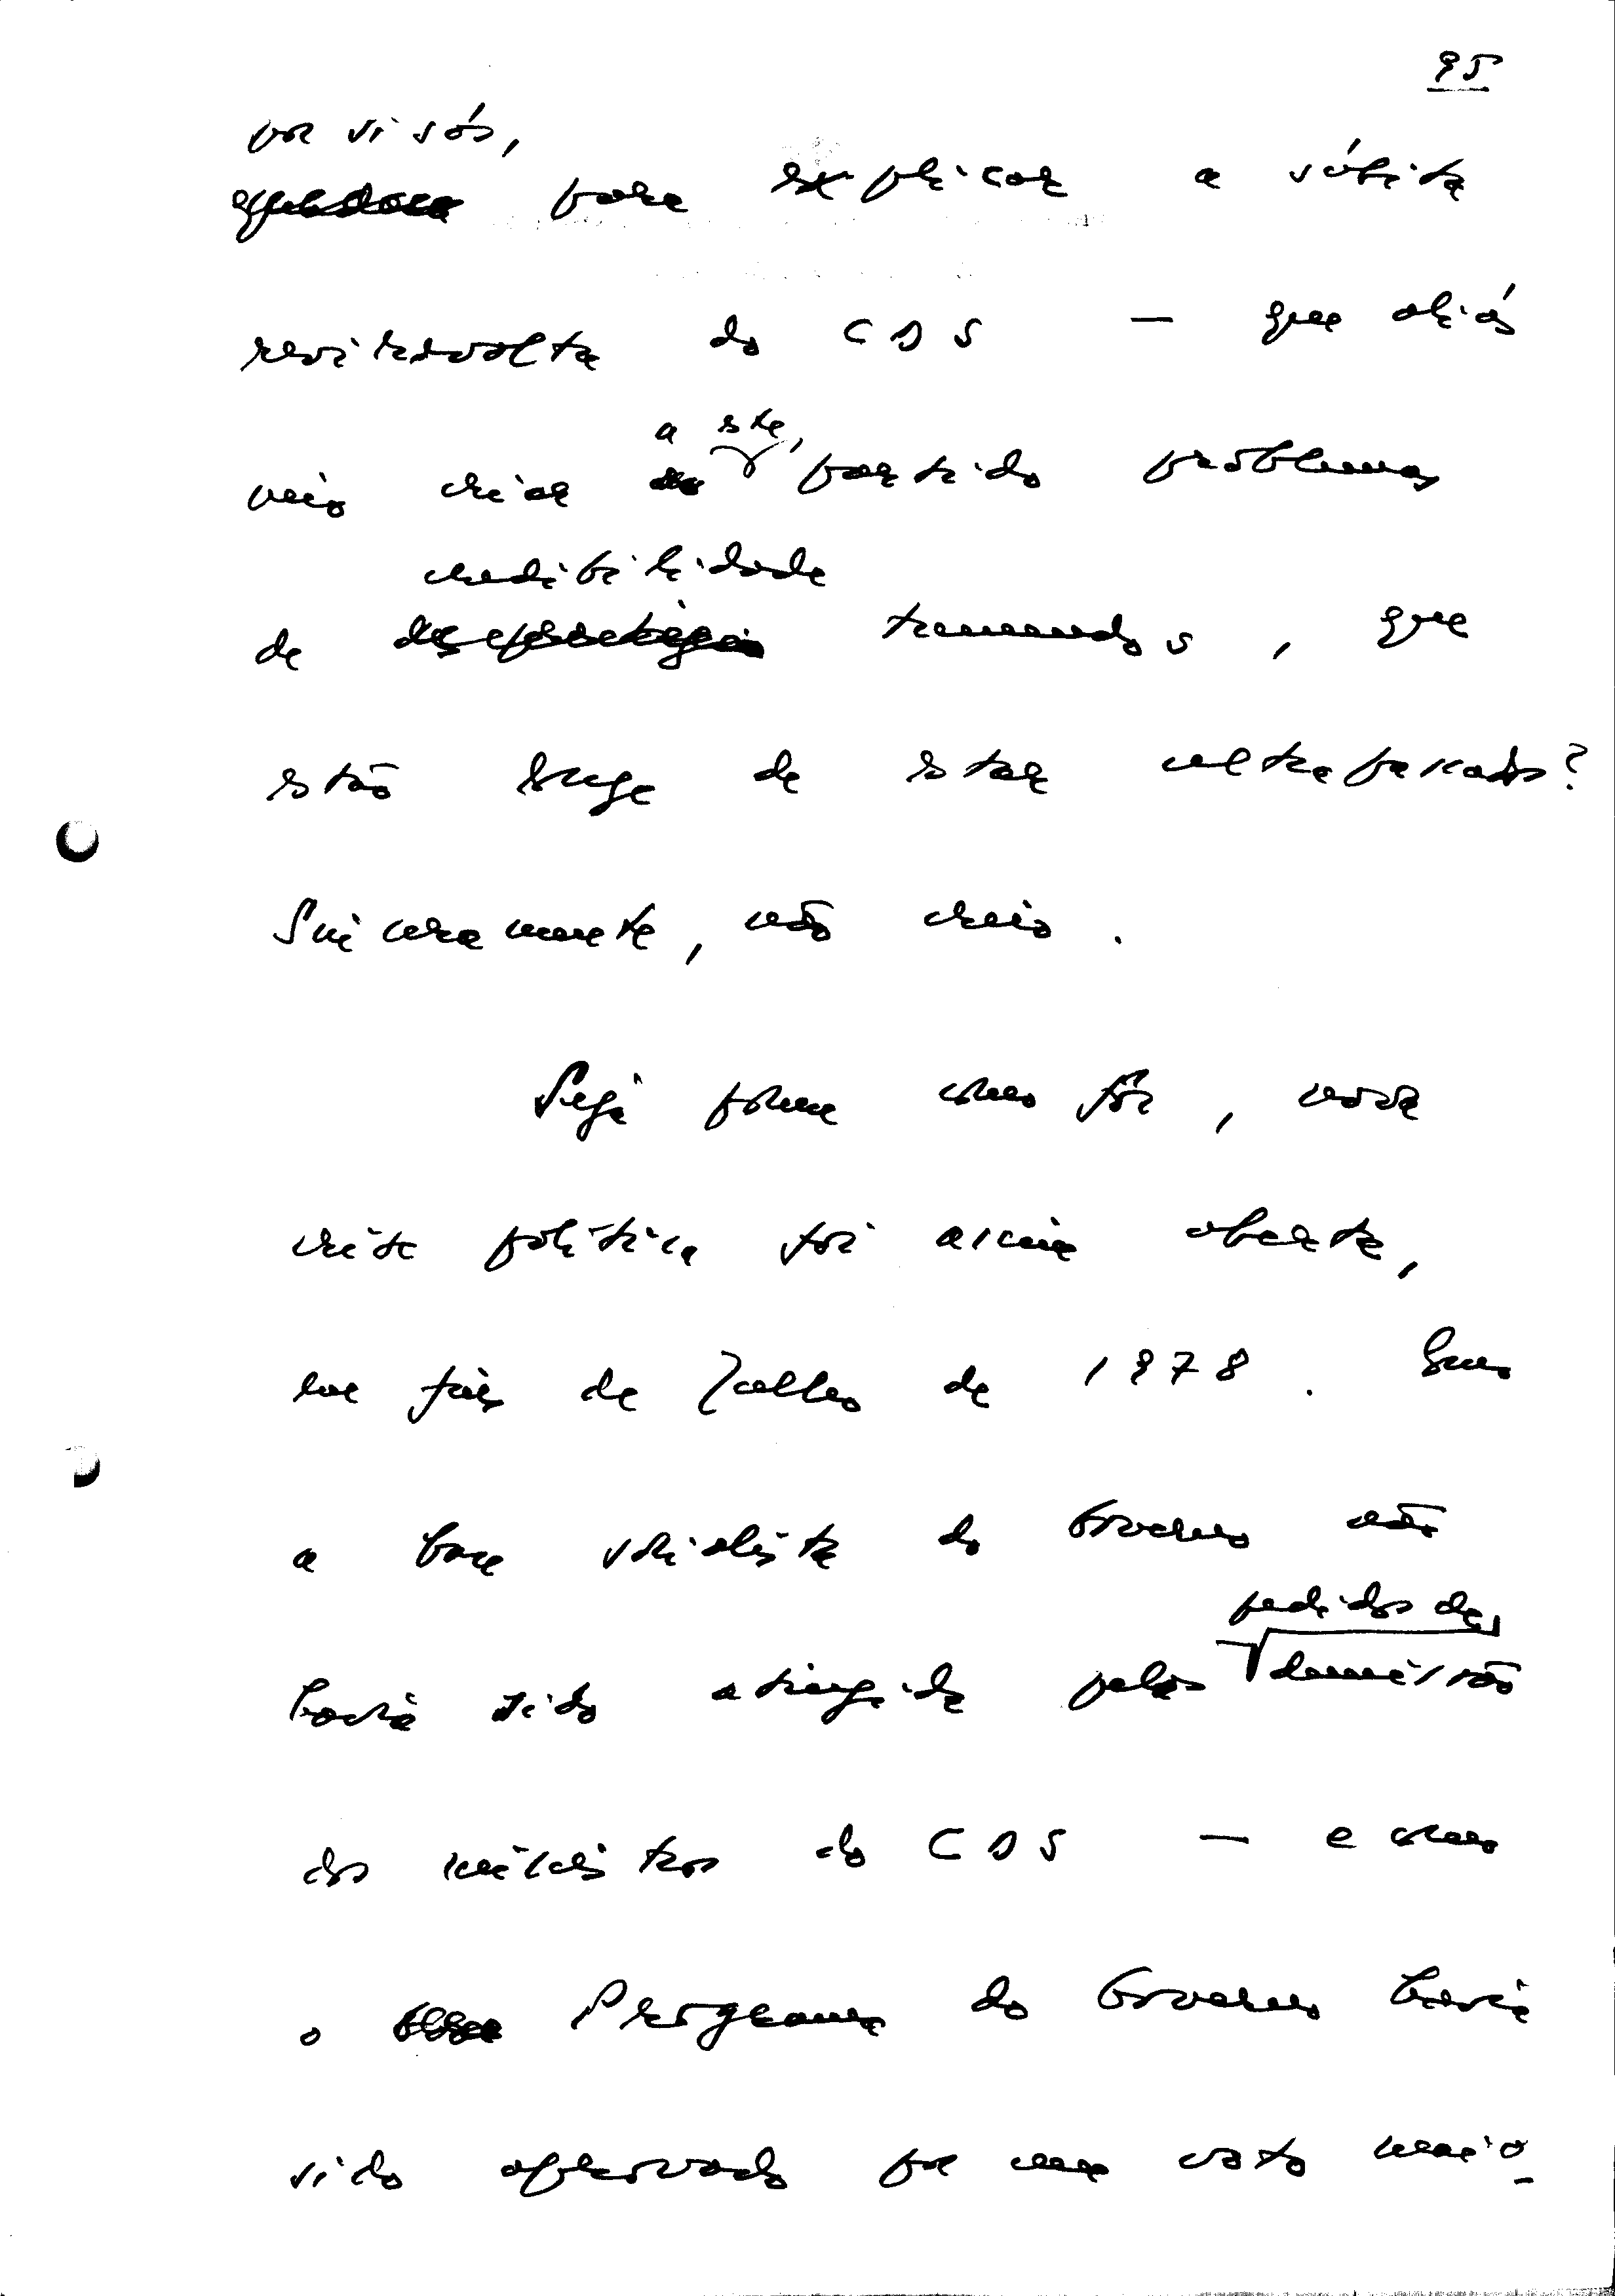 95
por si sós,
para explicar a súbita
reviravolta do CDS — que aliás
veio criar a este, partido problemas
credibilidade
de tremendos, que
estão longe de estar ultrapassados?
Sinceramente, não creio.
Seja porém como fôr, nova
crise política foi assim aberta,
em fins de Julho de 1978. Como
a base socialista do Governo não
pedidos de
havia sido atingida pelos demissão
dos ministros do CDS — e como
o Programa do Governo havia
sido aprovado por um voto maio-